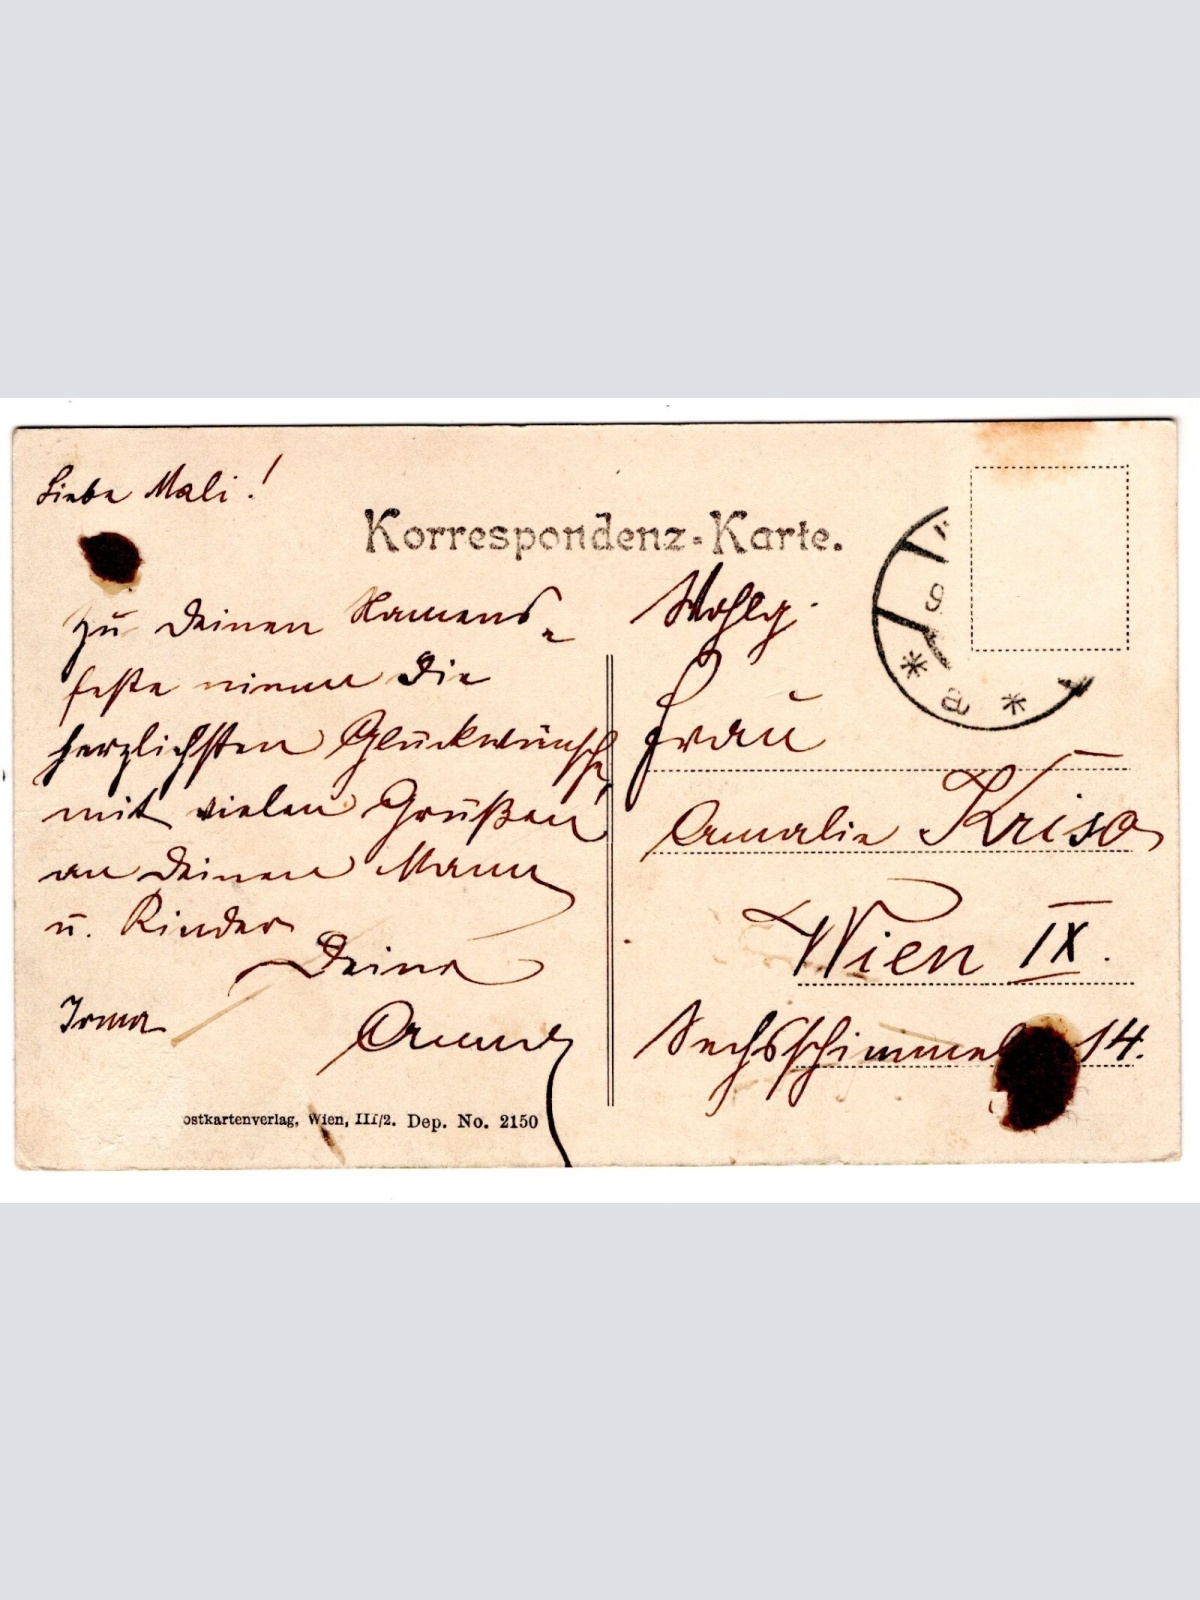 Liebe Mali!
Korrespondenz-Karte.
Zu Deinen Namens-
feste nimm die
herzlichsten Glückwünsche,
mit vielen Grüßen
an Deinen Mann
u. Kinder
Deine
Irma
Wohlg.
Frau
Amalie Kriso
Wien IX.
Sechsschimmel 14.
ostkartenverlag, Wien, III/2. Dep. No. 2150
9
* a *